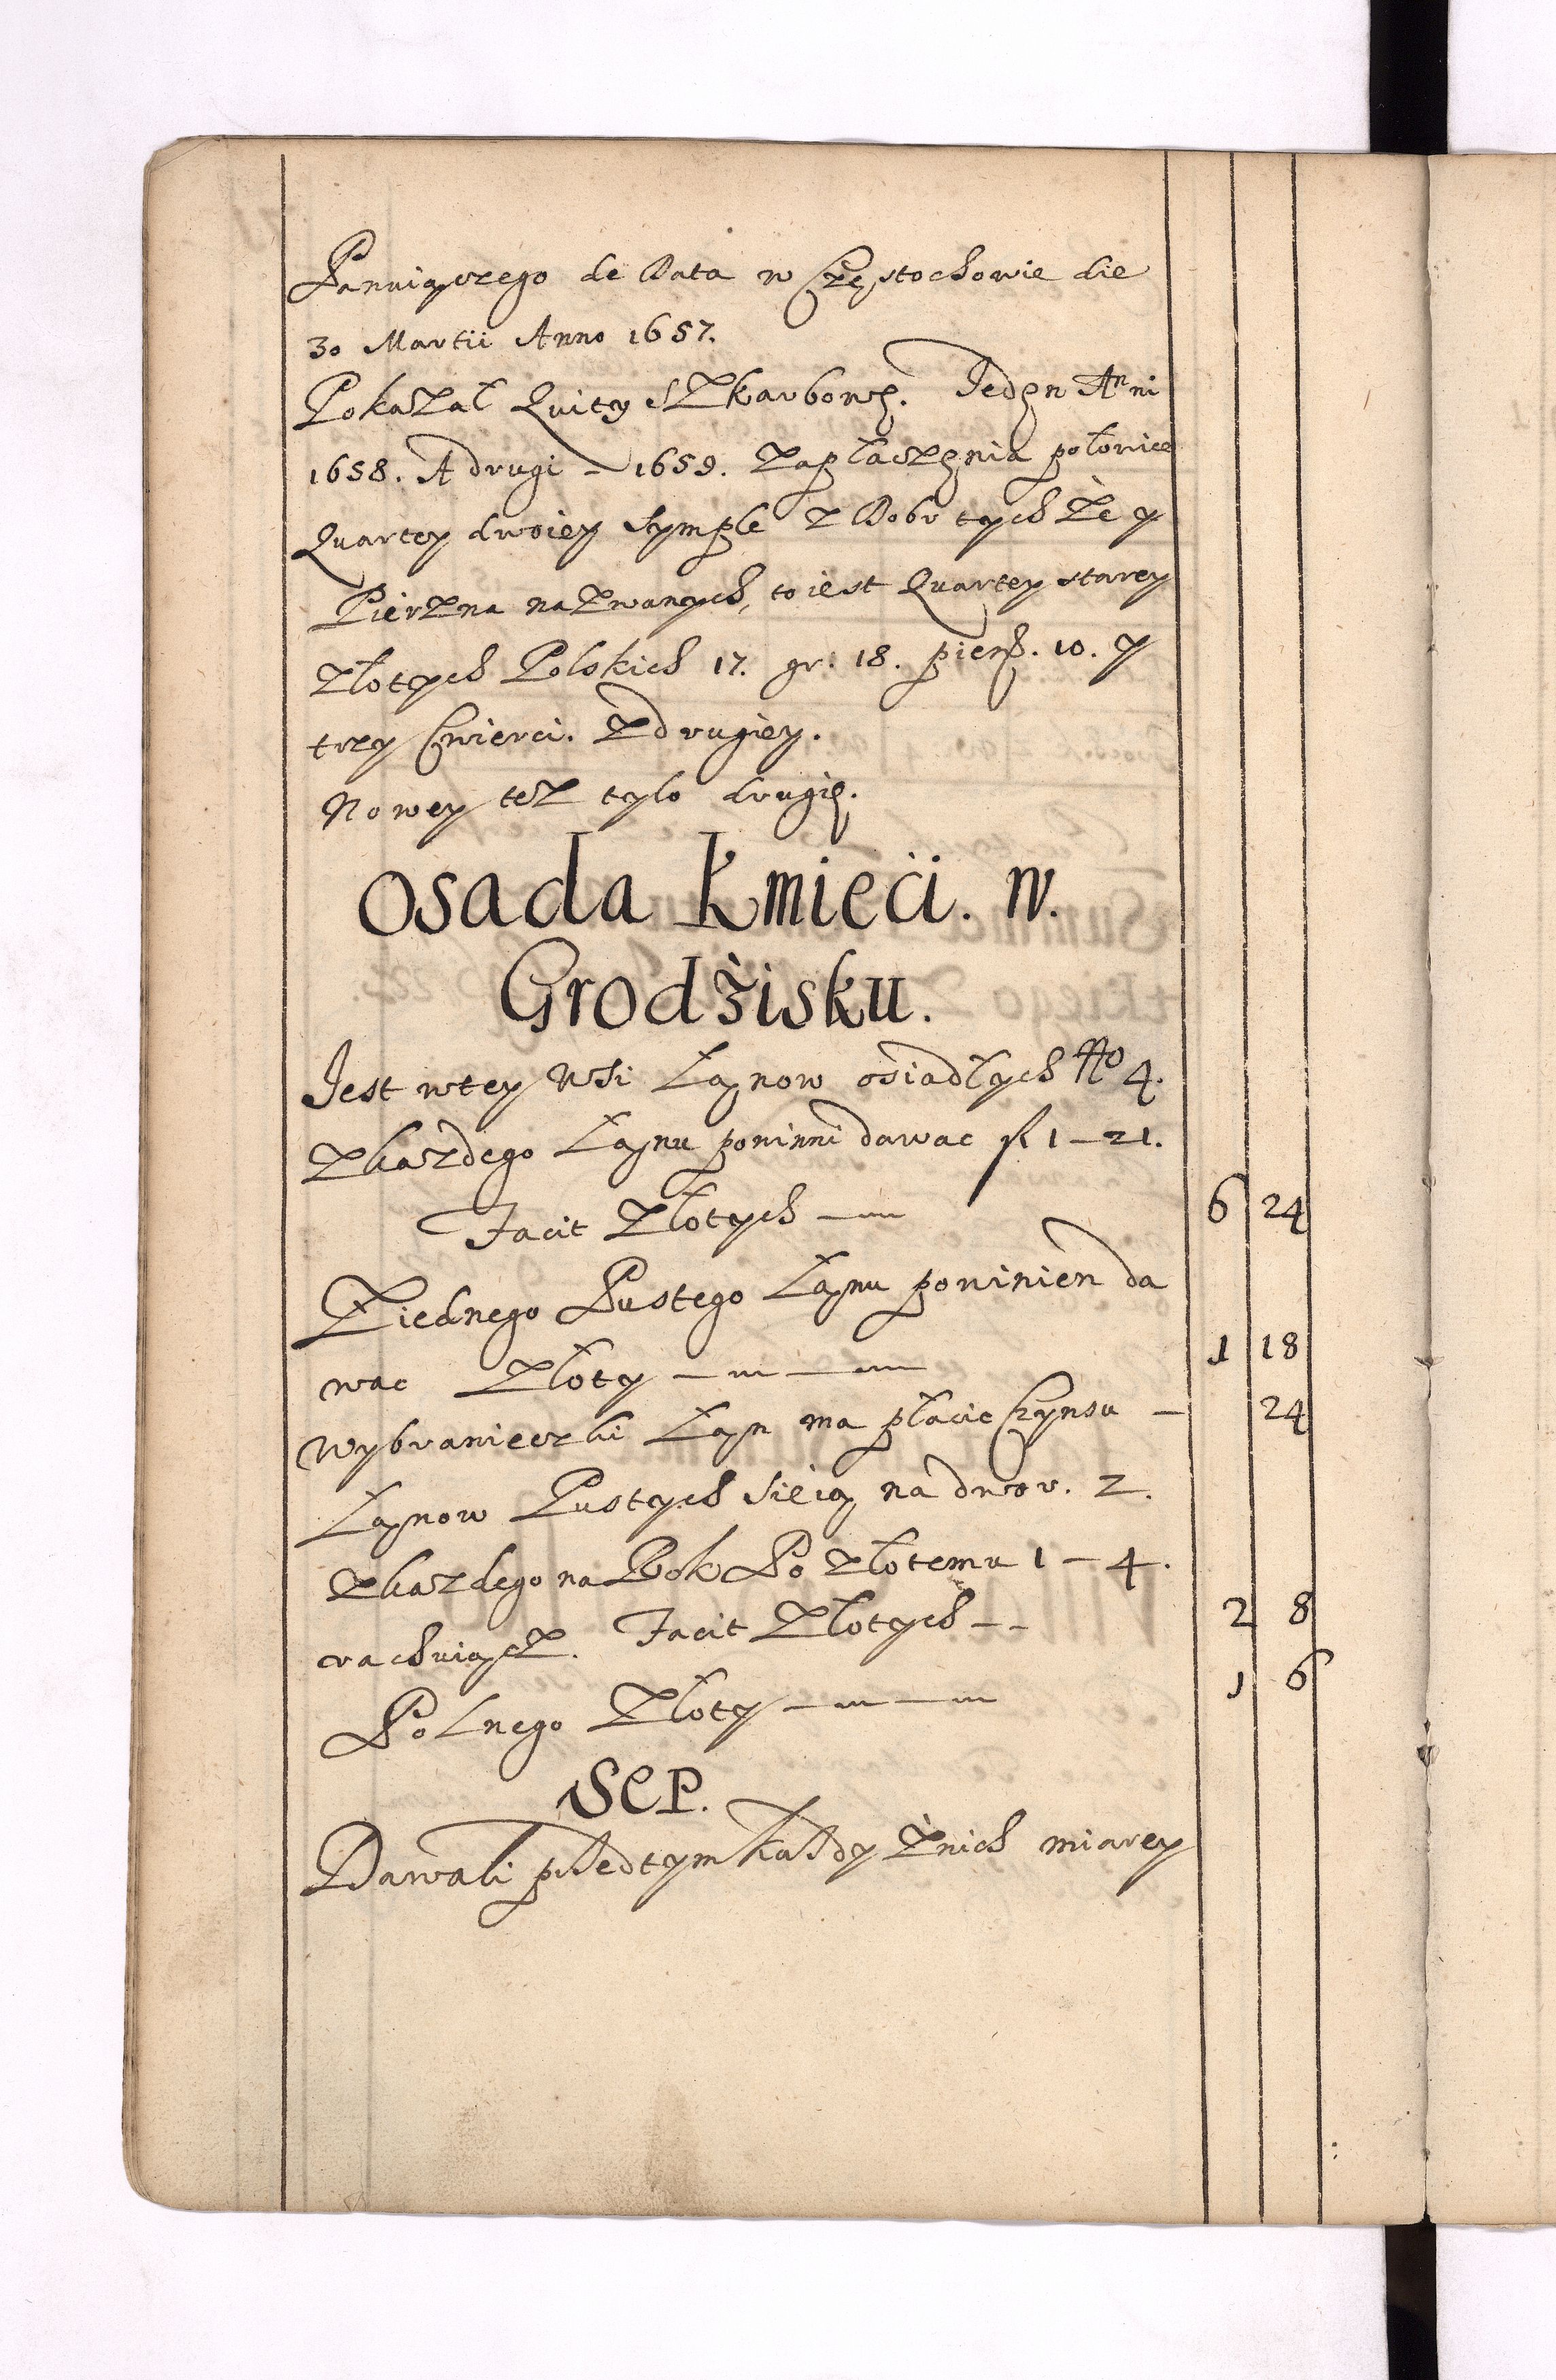 Panuiączego de Data w Częstochowie die
30 Martii Anno 1657.
Pokazał Quity Szkarbowę. Jedęn Anni
1658. A drugi – 1659. Zapłaczęnia połowice
Quartey dwoiey symple z Dobr tych Że y
Pierzna nazwanych, to iest Quartey starey
Złotych Polskich 17. gr. 18. pienę. 10. y
trzy Cwierci. Zdrugiey.
Nowey tesz tylo drugię.
Osada Kmieci. w.
Grodźisku.
Jest wtey Wsi Łanow ośiadłych No 4.
Zkaszdego Łanu powinni dawac fl 1 – 21.
Facit Złotych — 6 24
Ziednego Pustego Łanu powinien da
wac Złoty — — 1 18
Wybranieczki Łan ma płacic Czynsu — 24
Łanow Pustych sieią na dwor. 2.
Zkaszdego na Rok Po Złotemu 1 – 4.
rachuiącz. Facit Złotych – – 2 8
Polnego Złoty — — 1 6
SEP.
Dawali przedtym każdy Żnich miarey